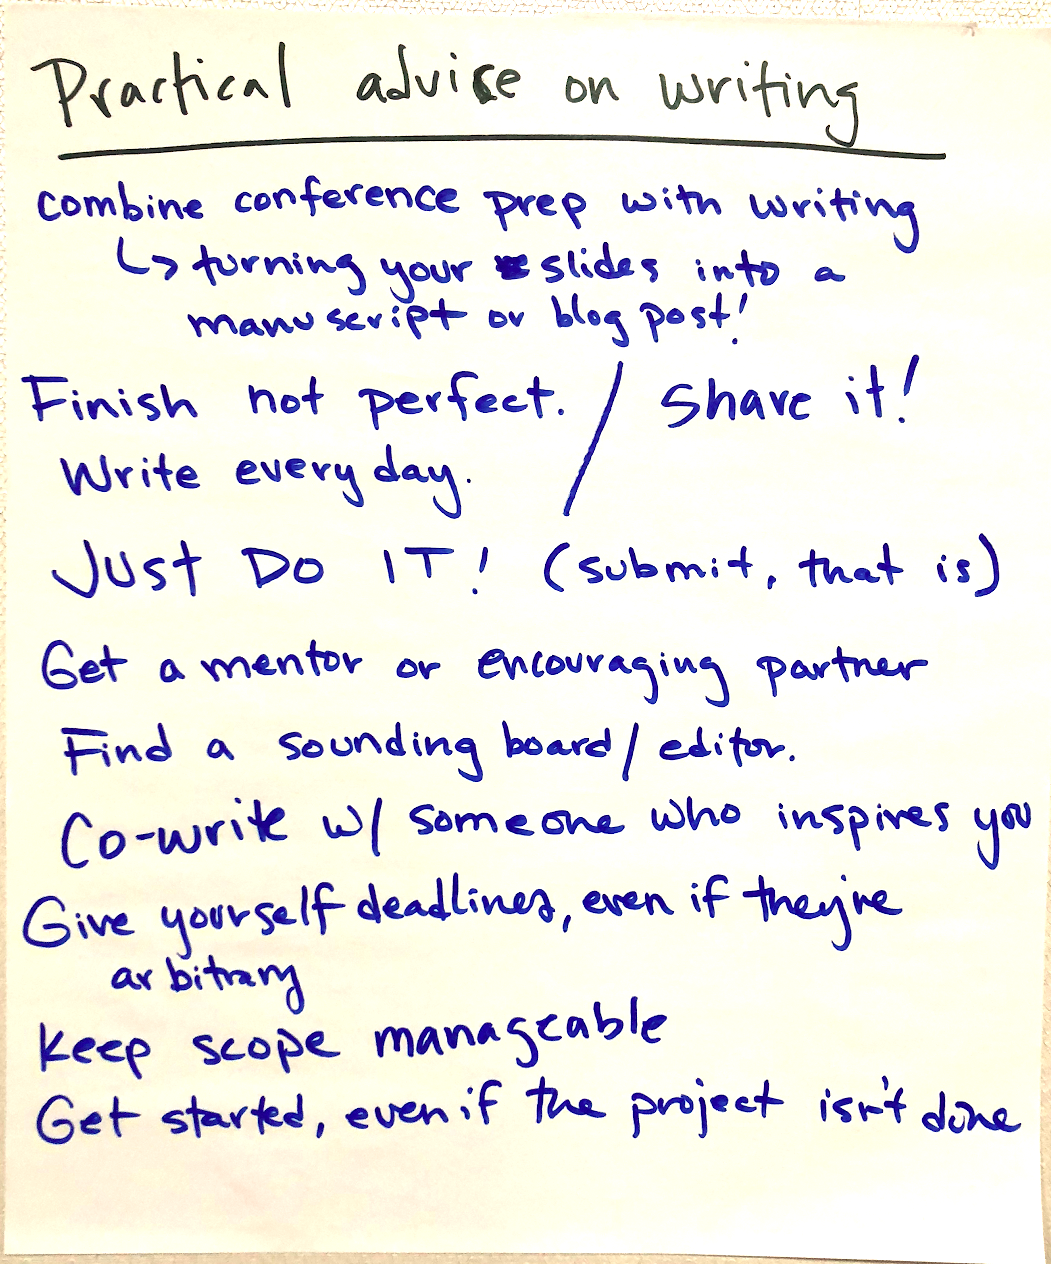 Practical advice on writing
combine conference prep with writing
↳ turning your slides into a
manuscript or blog post!
Finish not perfect. / Share it!
Write every day.
Just Do IT! (submit, that is)
Get a mentor or encouraging partner
Find a sounding board/editor.
Co-write w/ someone who inspires you
Give yourself deadlines, even if they're
arbitrary
Keep scope manageable
Get started, even if the project isn't done